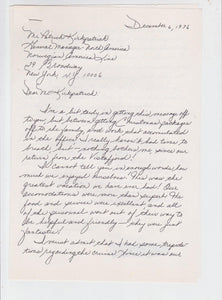 December 6, 1976
Mr. Patrick Kirkpatrick
General Manager North America
Norwegian America Line
29 Broadway
New York N.Y. 10006
Dear Mr. Kirkpatrick
I'm a bit tardy in getting this message off
to you, but between getting Christmas packages
off to the family and work that accumulated
in the office, I really haven't had time to
breath, but nothing bothers me since our
return from the Vistafjord!
I cannot tell you in enough words how
much we enjoyed ourselves. This was the
greatest vacation we have ever had! Our
accomodations were more than perfect. The
food and service were excellent and all
of the personnel went out of their way to
be helpful and friendly - they were just
fantastic!
I must admit that I had some trepida-
tions regarding the cruise since it was our